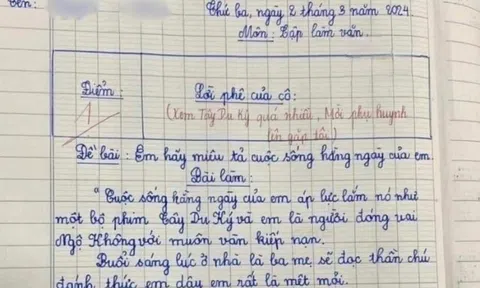 Tên:
Thứ ba, ngày 2 tháng 3 năm 2024
Môn: Tập làm văn.
Điểm:
Lời phê của cô:
1
(Xem Tây Du Ký quá nhiều, Mời phụ huynh
lên gặp tôi)
Đề bài: Em hãy miêu tả cuộc sống hằng ngày của em
Bài làm:
"Cuộc sống hằng ngày của em áp lực lắm nó như
một bộ phim Tây Du Ký và em là người đóng vai
Ngộ Không với muôn vàn kiếp nạn.
Buổi sáng lúc ở nhà là ba mẹ sẽ đọc thần chú
đánh thức em dậy em rất là mệt mỏi.